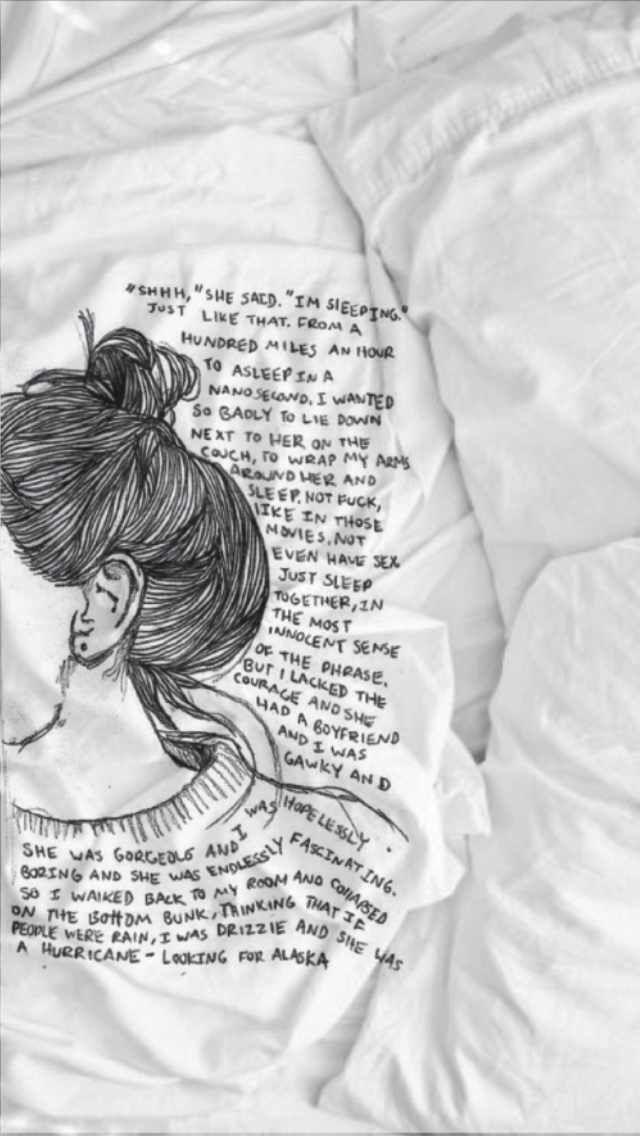 "SHHH," SHE SAID. "IM SlEEPING."
JUST LIKE THAT. FROM A
HUNDRED MILES AN HOUR
TO ASLEEP IN A
NANOSECOND. I WANTED
SO BADLY TO LIE DOWN
NEXT TO HER ON THE
COUCH, TO WRAP MY ARMS
AROUND HER AND
SLEEP. NOT FUCK,
lIKE IN THOSE
MOVIES. NOT
EVEN HAVE SEX
JUST SLEEP
TOGETHER, IN
THE MOST
INNOCENT SENSE
OF THE PHRASE.
BUT I LACKED THE
COURAGE AND SHE
HAD A BOYFRIEND
AND I WAS
GAWKY AND
SHE WAS GORGEOUS AND I WAS HOPELESSLY
BORING AND SHE WAS ENDLESSLY FASCINATING.
SO I WAlKED BACK TO MY ROOM AND COllAPSED
ON THE BOTTOM BUNK, THINKING THAT IF
PEOPLE WERE RAIN, I WAS DRIZZlE AND SHE WAS
A HURRICANE - LOOKING FOR ALASKA